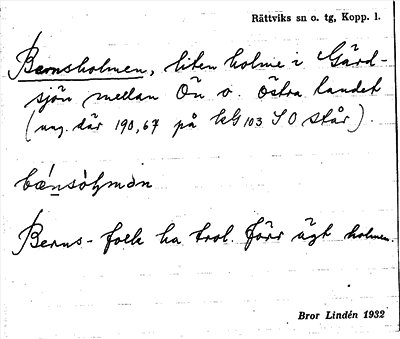 Rättviks sn o. tg, Kopp. l.
Bernsholmen, liten holme i Gärd-
sjön mellan Ön o. östra landet
(ung. där 190,67 på kG 103 SO står).
bæ̀nsòḷmən
Berns-folk ha trol. förr ägt holmen.
Bror Lindén 1932